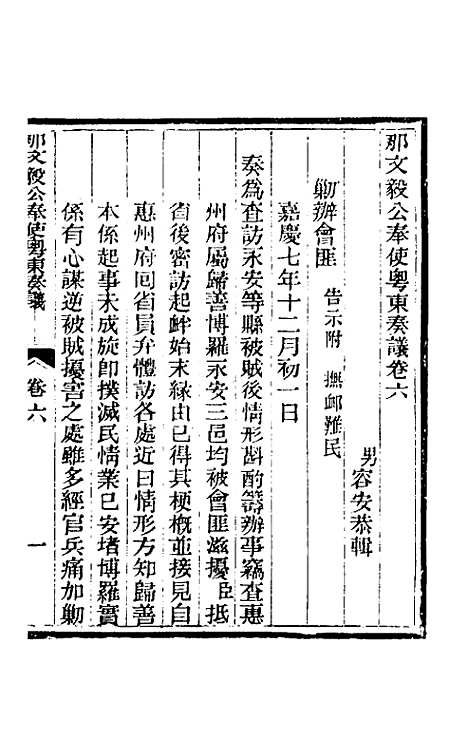 那文毅公奉使粵東奏議卷六
男容安恭輯
勦辦會匪 告示附 撫卹難民
嘉慶七年十二月初一日
奏爲查訪永安等縣被賊後情形斟酌籌辦事竊查惠
州府屬歸善博羅永安三邑均被會匪滋擾臣抵
省後密訪起衅始末緣由已得其梗概並接見自
惠州府回省員弁體訪各處近日情形方知歸善
本係起事未成旋卽撲滅民情業已安堵博羅實
係有心謀逆被賊擾害之處雖多經官兵痛加勦
那文毅公奉使粵東奏議 卷六 一